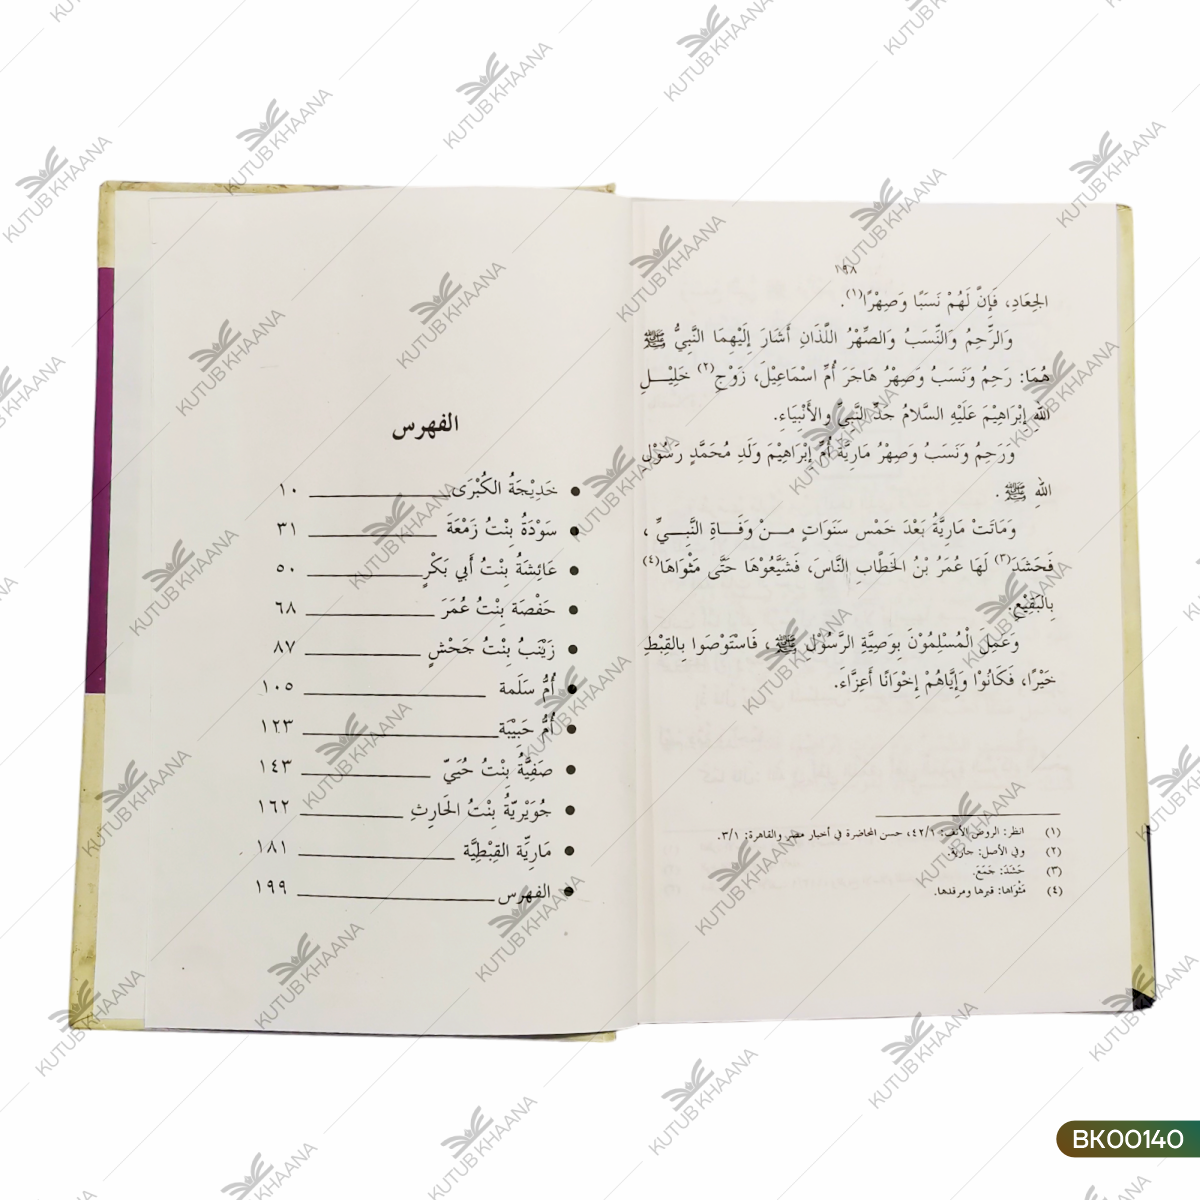 ١٩٨
الجِعَادِ، فَإِنَّ لَهُمْ نَسَبًا وَصِهْرًا(١).
وَالرَّحِمُ وَالنَّسَبُ وَالصِّهْرُ اللَّذَانِ أَشَارَ إِلَيْهِمَا النَّبِيُّ ﷺ
هُمَا: رَحِمُ وَنَسَبُ وَصِهْرُ هَاجَرَ أُمِّ اسْمَاعِيْلَ، زَوْجِ(٢) خَلِيْلِ
اللهِ إِبْرَاهِيْمَ عَلَيْهِ السَّلَامُ جَدِّ النَّبِيِّ والأَنْبِيَاءِ.
وَرَحِمُ وَنَسَبُ وَصِهْرُ مَارِيَّةَ أُمِّ إِبْرَاهِيْمَ وَلَدِ مُحَمَّدٍ رَسُوْلِ
اللهِ ﷺ .
وَمَاتَتْ مَارِيَّةُ بَعْدَ خَمْسِ سَنَوَاتٍ مِنْ وَفَاةِ النَّبِيِّ ،
فَحَشَدَ(٣) لَهَا عُمَرُ بْنُ الخَطَّابِ النَّاسَ، فَشَيَّعُوْهَا حَتَّى مَثْوَاهَا(٤)
بِالبَقِيْعِ.
وَعَمِلَ الْمُسْلِمُوْنَ بِوَصِيَّةِ الرَّسُوْلِ ﷺ ، فَاسْتَوْصَوا بِالقِبْطِ
خَيْرًا، فَكَانُوْا وَإِيَّاهُمْ إِخْوَانًا أَعِزَّاءَ.
(١) انظر: الروض الأنف: ٤٢/١، حسن المحاضرة في أخبار مصر والقاهرة: ٣/١.
(٢) وفي الأصل: جارية.
(٣) حَشَدَ: جَمَعَ.
(٤) مَثْوَاهَا: قبرها ومرقدها.
الفهرس
• خَدِيْجَةُ الكُبْرَى ١٠
• سَوْدَةُ بِنْتُ زَمْعَةَ ٣١
• عَائِشَةُ بِنْتُ أَبي بَكْرٍ ٥٠
• حَفْصَة بِنْتُ عُمَرَ ٦٨
• زَيْنَبُ بِنْتُ جَحْشٍ ٨٧
• أُمُّ سَلَمة ١٠٥
• أُمُّ حَبِيْبَة ١٢٣
• صَفِيَّةُ بِنْتُ حُيَيّ ١٤٣
• جُوَيْرِيّةُ بِنْتُ الحَارِثِ ١٦٢
• مَارِيِّة القِبْطِيَّة ١٨١
• الفهرس ١٩٩
KUTUB KHAANA
BK00140